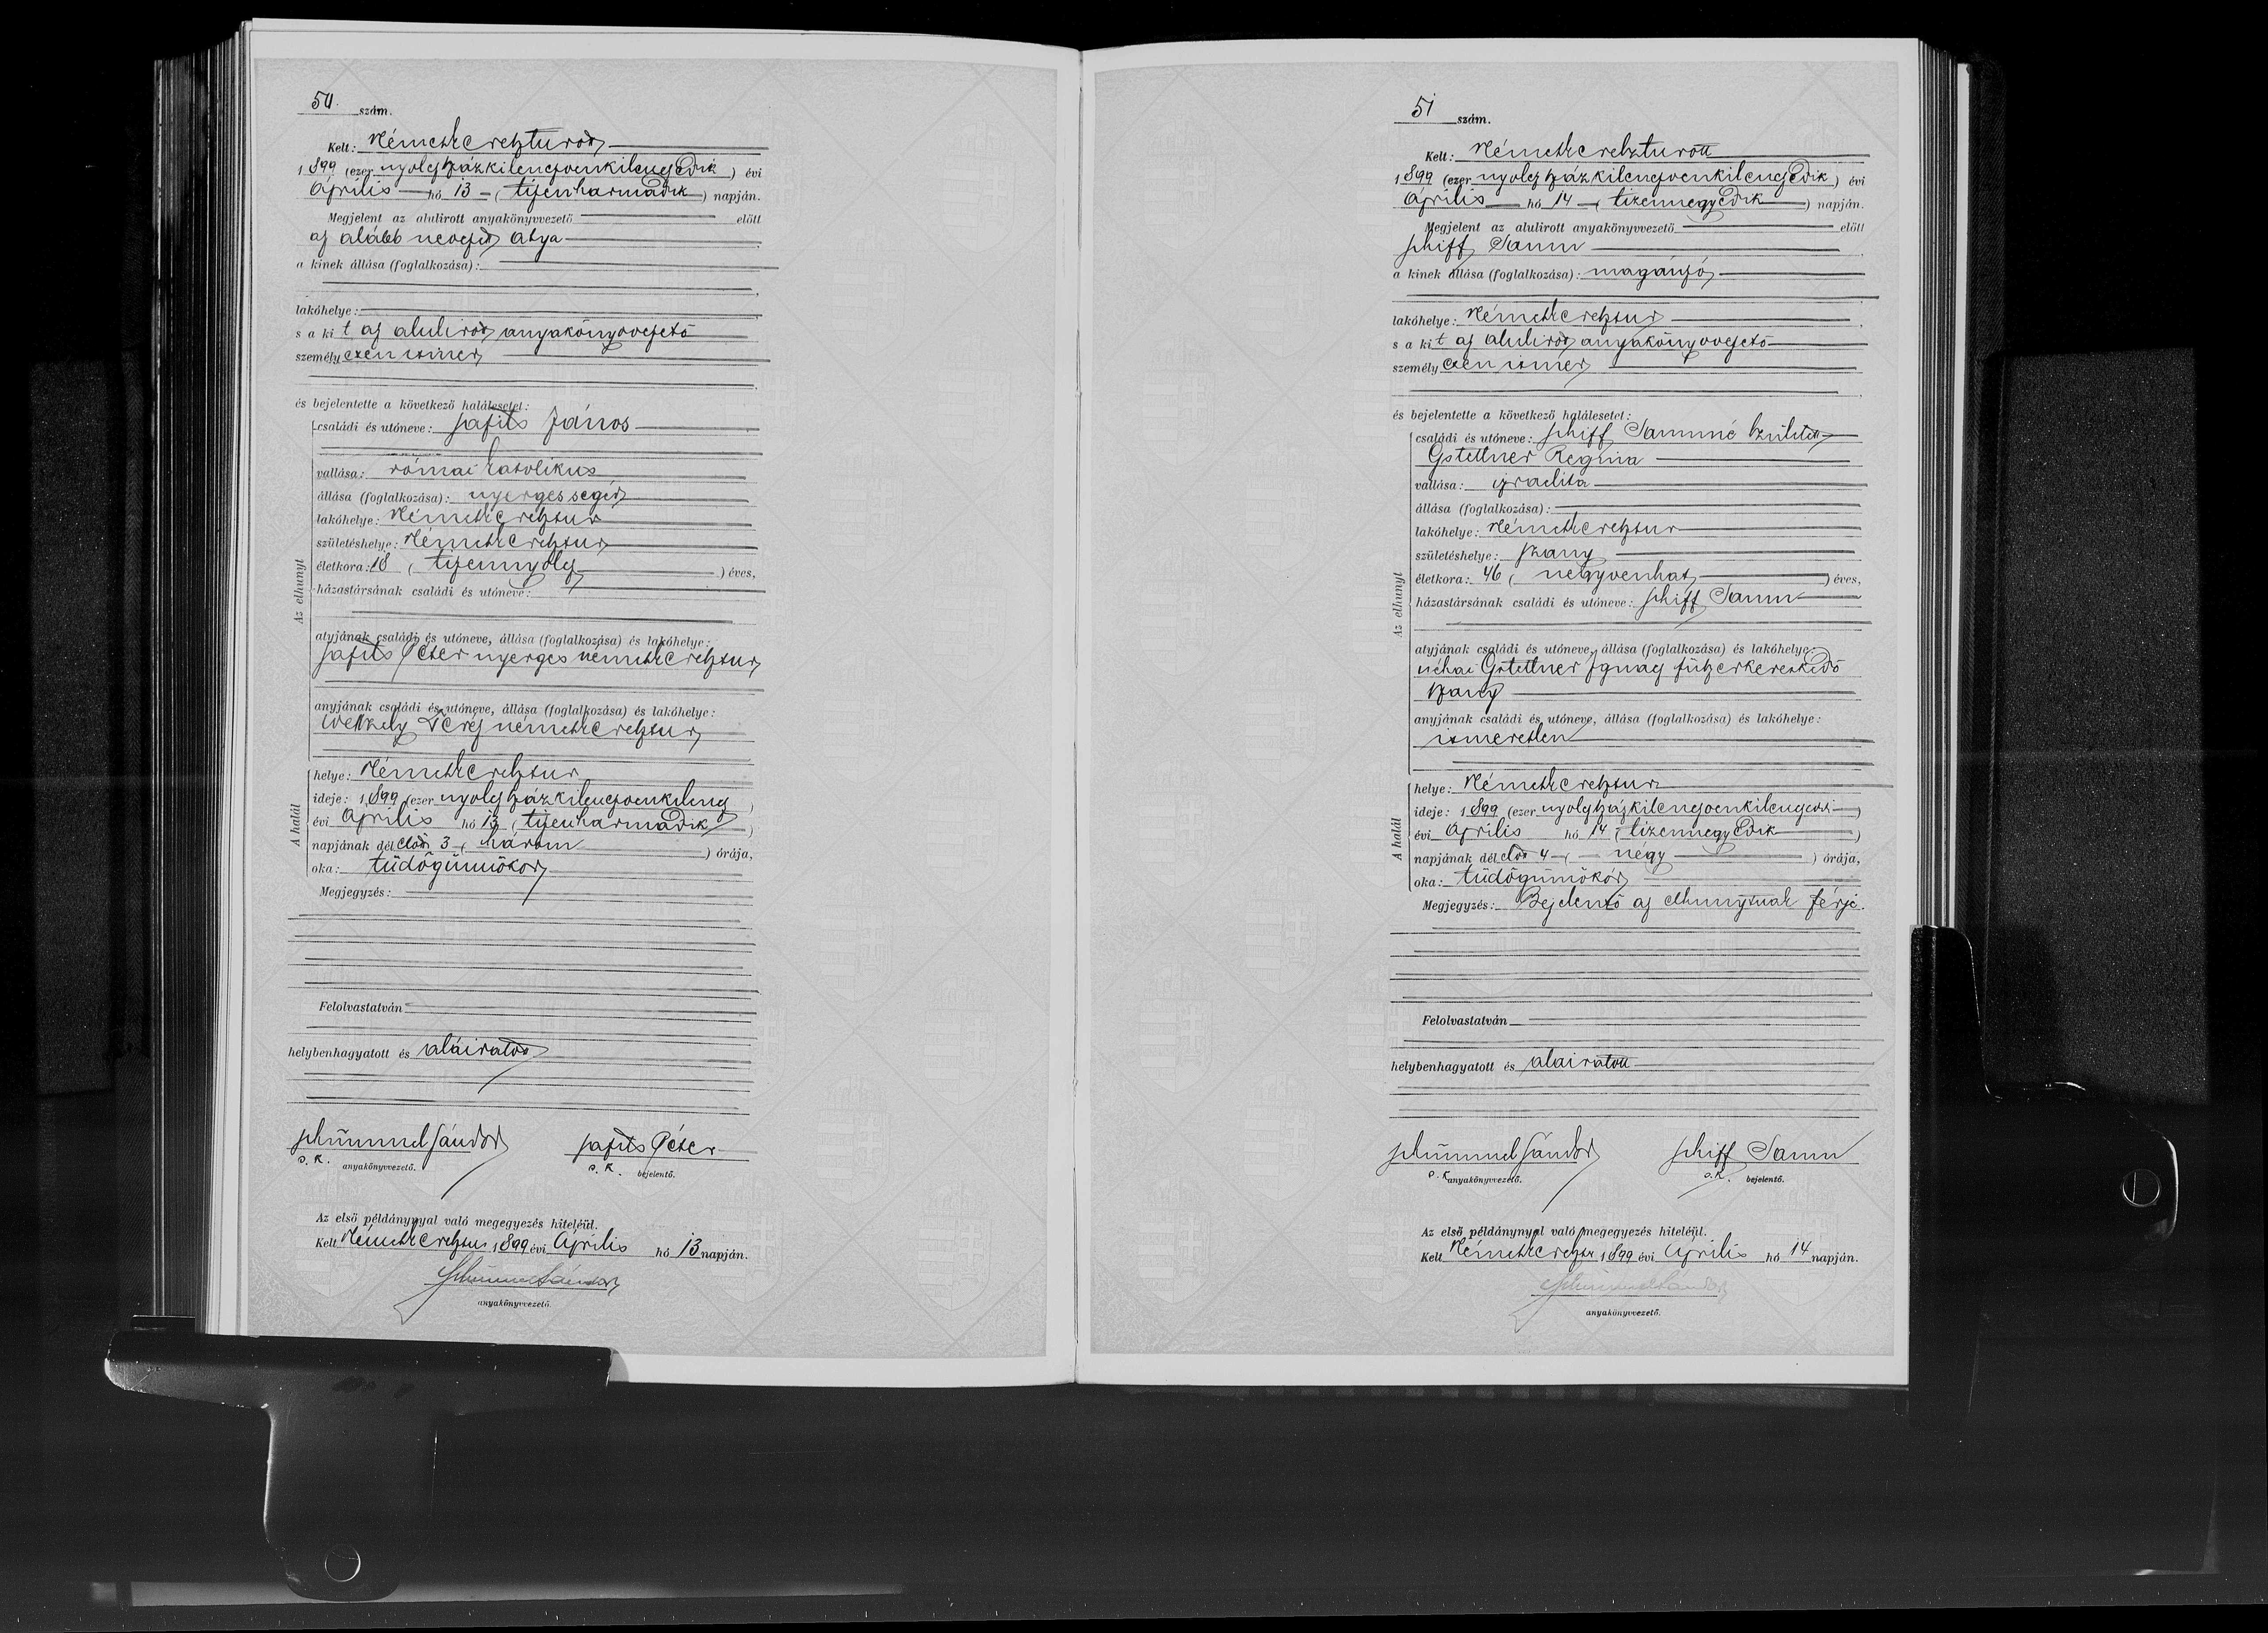 50. szám.
Kelt: Németkeresztúrott
1899 (ezer nyolczszázkilenczvenkilenczedik) évi
Április hó 13 (tizenharmadik) napján.
Megjelent az alulirott anyakönyvvezető előtt
az alább nevezett atya
a kinek állása (foglalkozása):
lakóhelye:
s a kit az alulirott anyakönyvvezető
személyesen ismer,
és bejelentette a következő halálesetet:
Az elhunyt
családi és utóneve: János
vallása: római katolikus
állása (foglalkozása): nyerges segéd
lakóhelye: Németkeresztur
születéshelye: Németkeresztur
életkora: 18 (tizennyolcz) éves,
házastársának családi és utóneve:
atyjának családi és utóneve, állása (foglalkozása) és lakóhelye:
Péter nyerges németkeresztur
anyjának családi és utóneve, állása (foglalkozása) és lakóhelye:
Teréz németkeresztur
A halál
helye: Németkeresztur
ideje: 1899 (ezer nyolczszázkilenczvenkilencz)
évi Április hó 13 (tizenharmadik)
napjának délelőtt 3 (három) órája,
oka: tüdőgümőkór
Megjegyzés:
Felolvastatván
helybenhagyatott és aláiratott
Schümmel Sándor Péter
s. k. anyakönyvvezető. s. k. bejelentő.
Az első példánynyal való megegyezés hiteléül.
Kelt Németkeresztur 1899 évi Április hó 13 napján.
Schümmel Sándor
anyakönyvvezető.
51 szám.
Kelt: Németkeresztúrott
1899 (ezer nyolczszázkilenczvenkilenczedik) évi
Április hó 14 (tizennegyedik) napján.
Megjelent az alulirott anyakönyvvezető előtt
Schiff Samu
a kinek állása (foglalkozása): magánzó
lakóhelye: Németkeresztur
s a kit az alulirott anyakönyvvezető
személyesen ismer,
és bejelentette a következő halálesetet:
Az elhunyt
családi és utóneve: Schiff Samuné született
Gstettner Regina
vallása: izraelita
állása (foglalkozása):
lakóhelye: Németkeresztur
születéshelye: Szany
életkora: 46 (negyvenhat) éves,
házastársának családi és utóneve: Schiff Samu
atyjának családi és utóneve, állása (foglalkozása) és lakóhelye:
néhai Gstettner Ignacz fűszerkereskedő
Szany
anyjának családi és utóneve, állása (foglalkozása) és lakóhelye:
ismeretlen
A halál
helye: Németkeresztur
ideje: 1899 (ezer nyolczszázkilenczvenkilenczedik)
évi Április hó 14 (tizennegyedik)
napjának délelőtt 4 (négy) órája,
oka: tüdőgümőkór
Megjegyzés: Bejelentő az elhunytnak férje.
Felolvastatván
helybenhagyatott és aláiratott
Schümmel Sándor Schiff Samu
s. k. anyakönyvvezető. s. k. bejelentő.
Az első példánynyal való megegyezés hiteléül.
Kelt Németkeresztur 1899 évi Április hó 14 napján.
Schümmel Sándor
anyakönyvvezető.